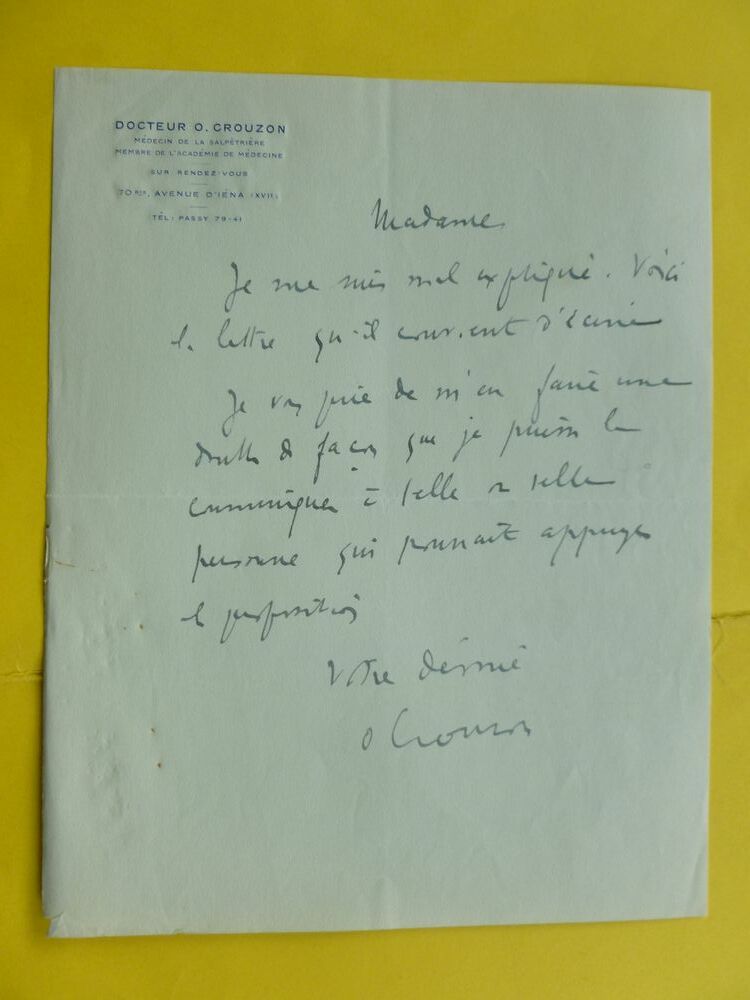 DOCTEUR O. CROUZON
MÉDECIN DE LA SALPÊTRIÈRE
MEMBRE DE L'ACADÉMIE DE MÉDECINE
SUR RENDEZ-VOUS
70 BIS, AVENUE D'IÉNA (XVIE)
TÉL: PASSY 79-41
Madame
Je me suis mal expliqué. Voici
la lettre qu'il convient d'écrire
Je vous prie de m'en faire une
double de façon que je puisse la
communiquer à telle ou telle
personne qui pourrait appuyer
la proposition
Votre dévoué
O Crouzon